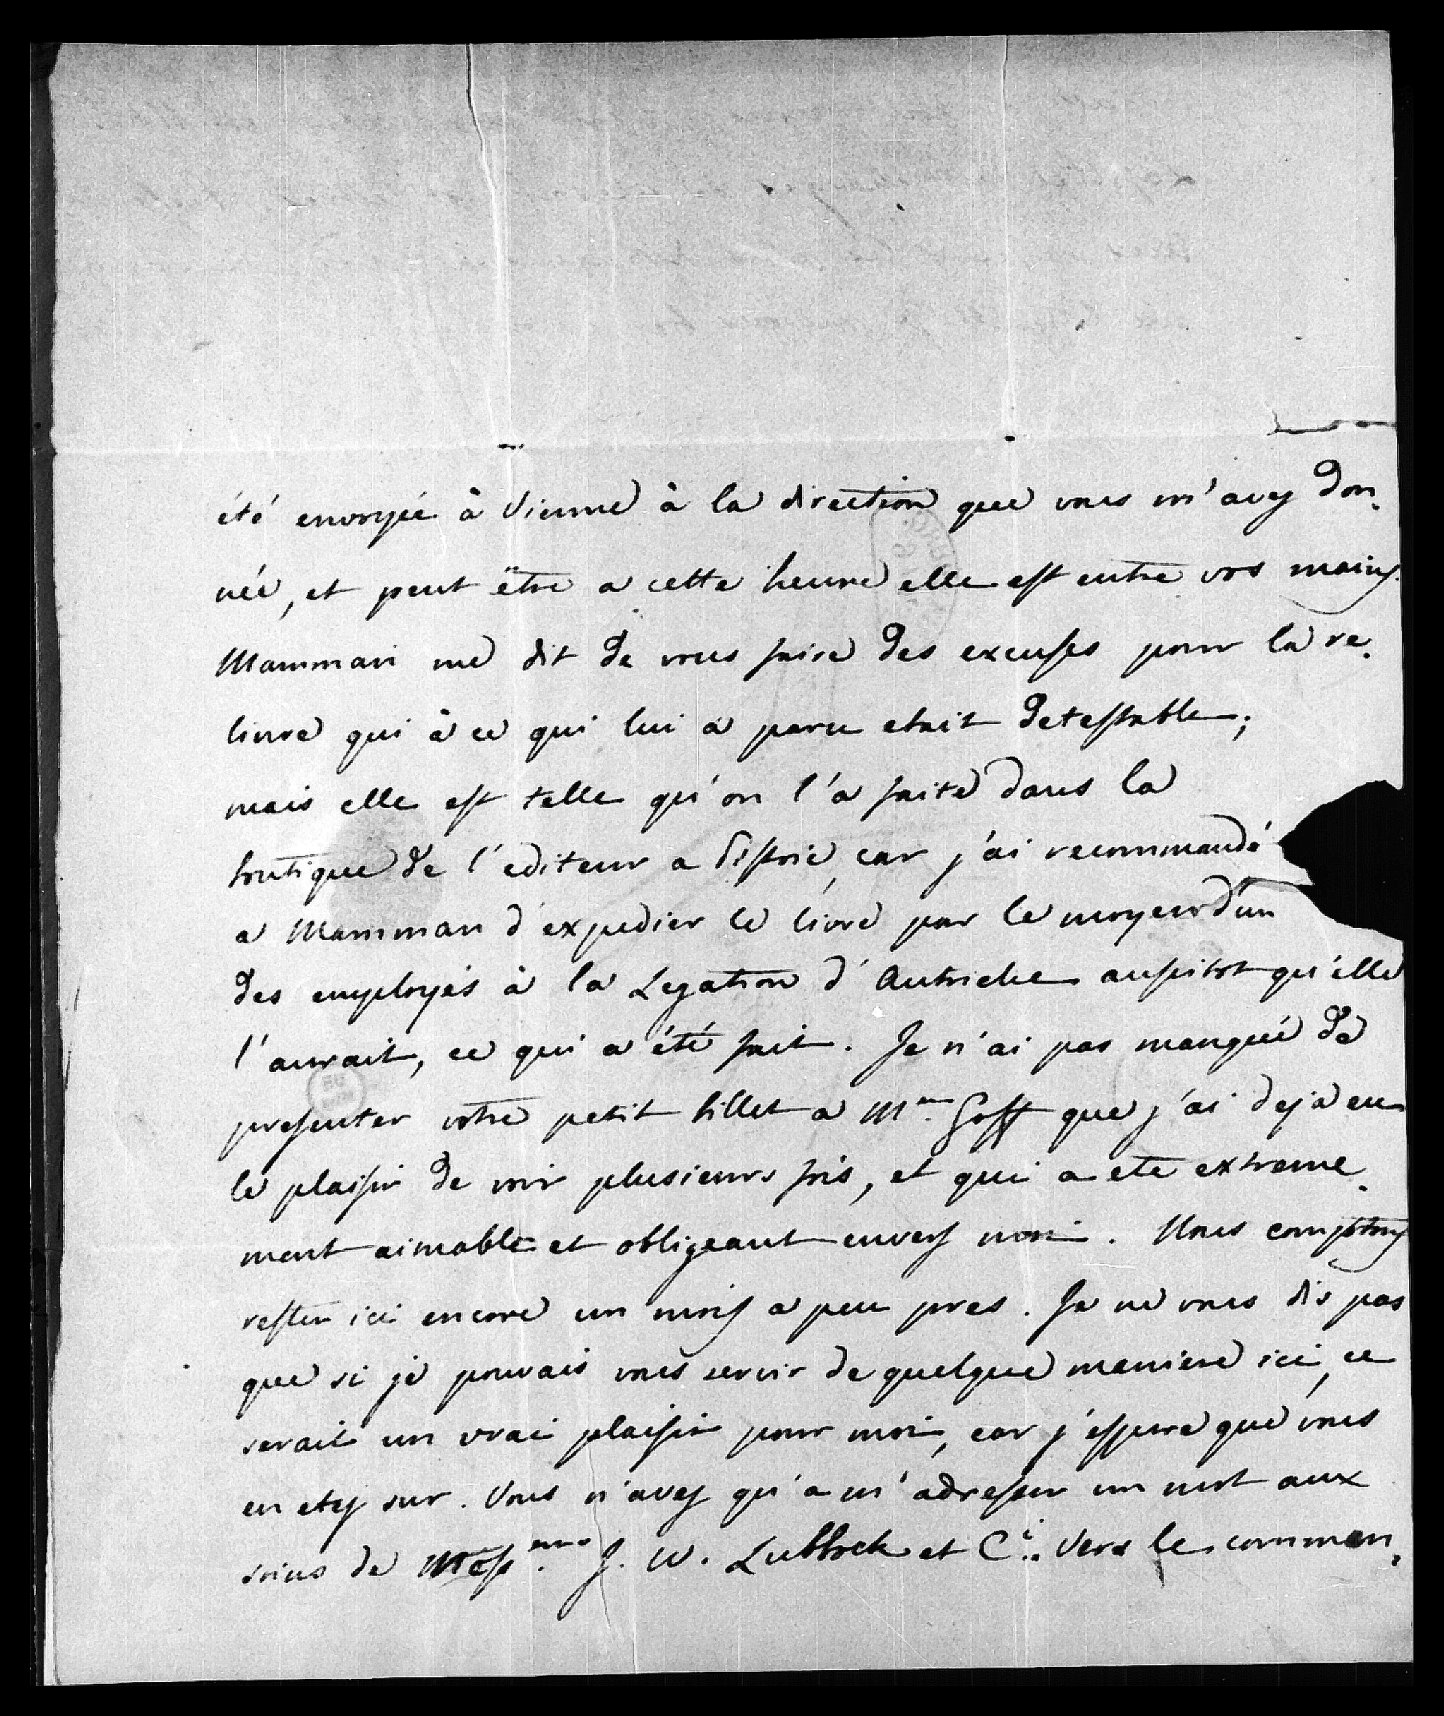 été envoyée à Vienne à la direction que vous m'avez don-
née, et peut être a cette heure elle est entre vos mains.
Mamman me dit de vous faire des excuses pour la re-
liure qui à ce qui lui a paru etait detestable;
mais elle est telle qu'on l'a faite dans la
boutique de l'editeur a car j'ai recommandé
a Mamman d'expedier le livre par le moyen d'un
des employés à la Legation d'Autriche aussitot qu'elle
l'aurait, ce qui a été fait. Je n'ai pas manqué de
presenter votre petit billet a Goff que j'ai deja eu
le plaisir de voir plusieurs fois, et qui a ete extreme-
ment aimable et obligeant envers moi. Nous comptons
rester ici encore un mois a peu pres. Je ne vous dis pas
que si je pouvais vous servir de quelque maniere ici, ce
serait un vrai plaisir pour moi, car j'espere que vous
en etes sur. Vous n'avez qu'a m'adresser un mot aux
soins de J. W. Lubbock et C. Vers le commen-